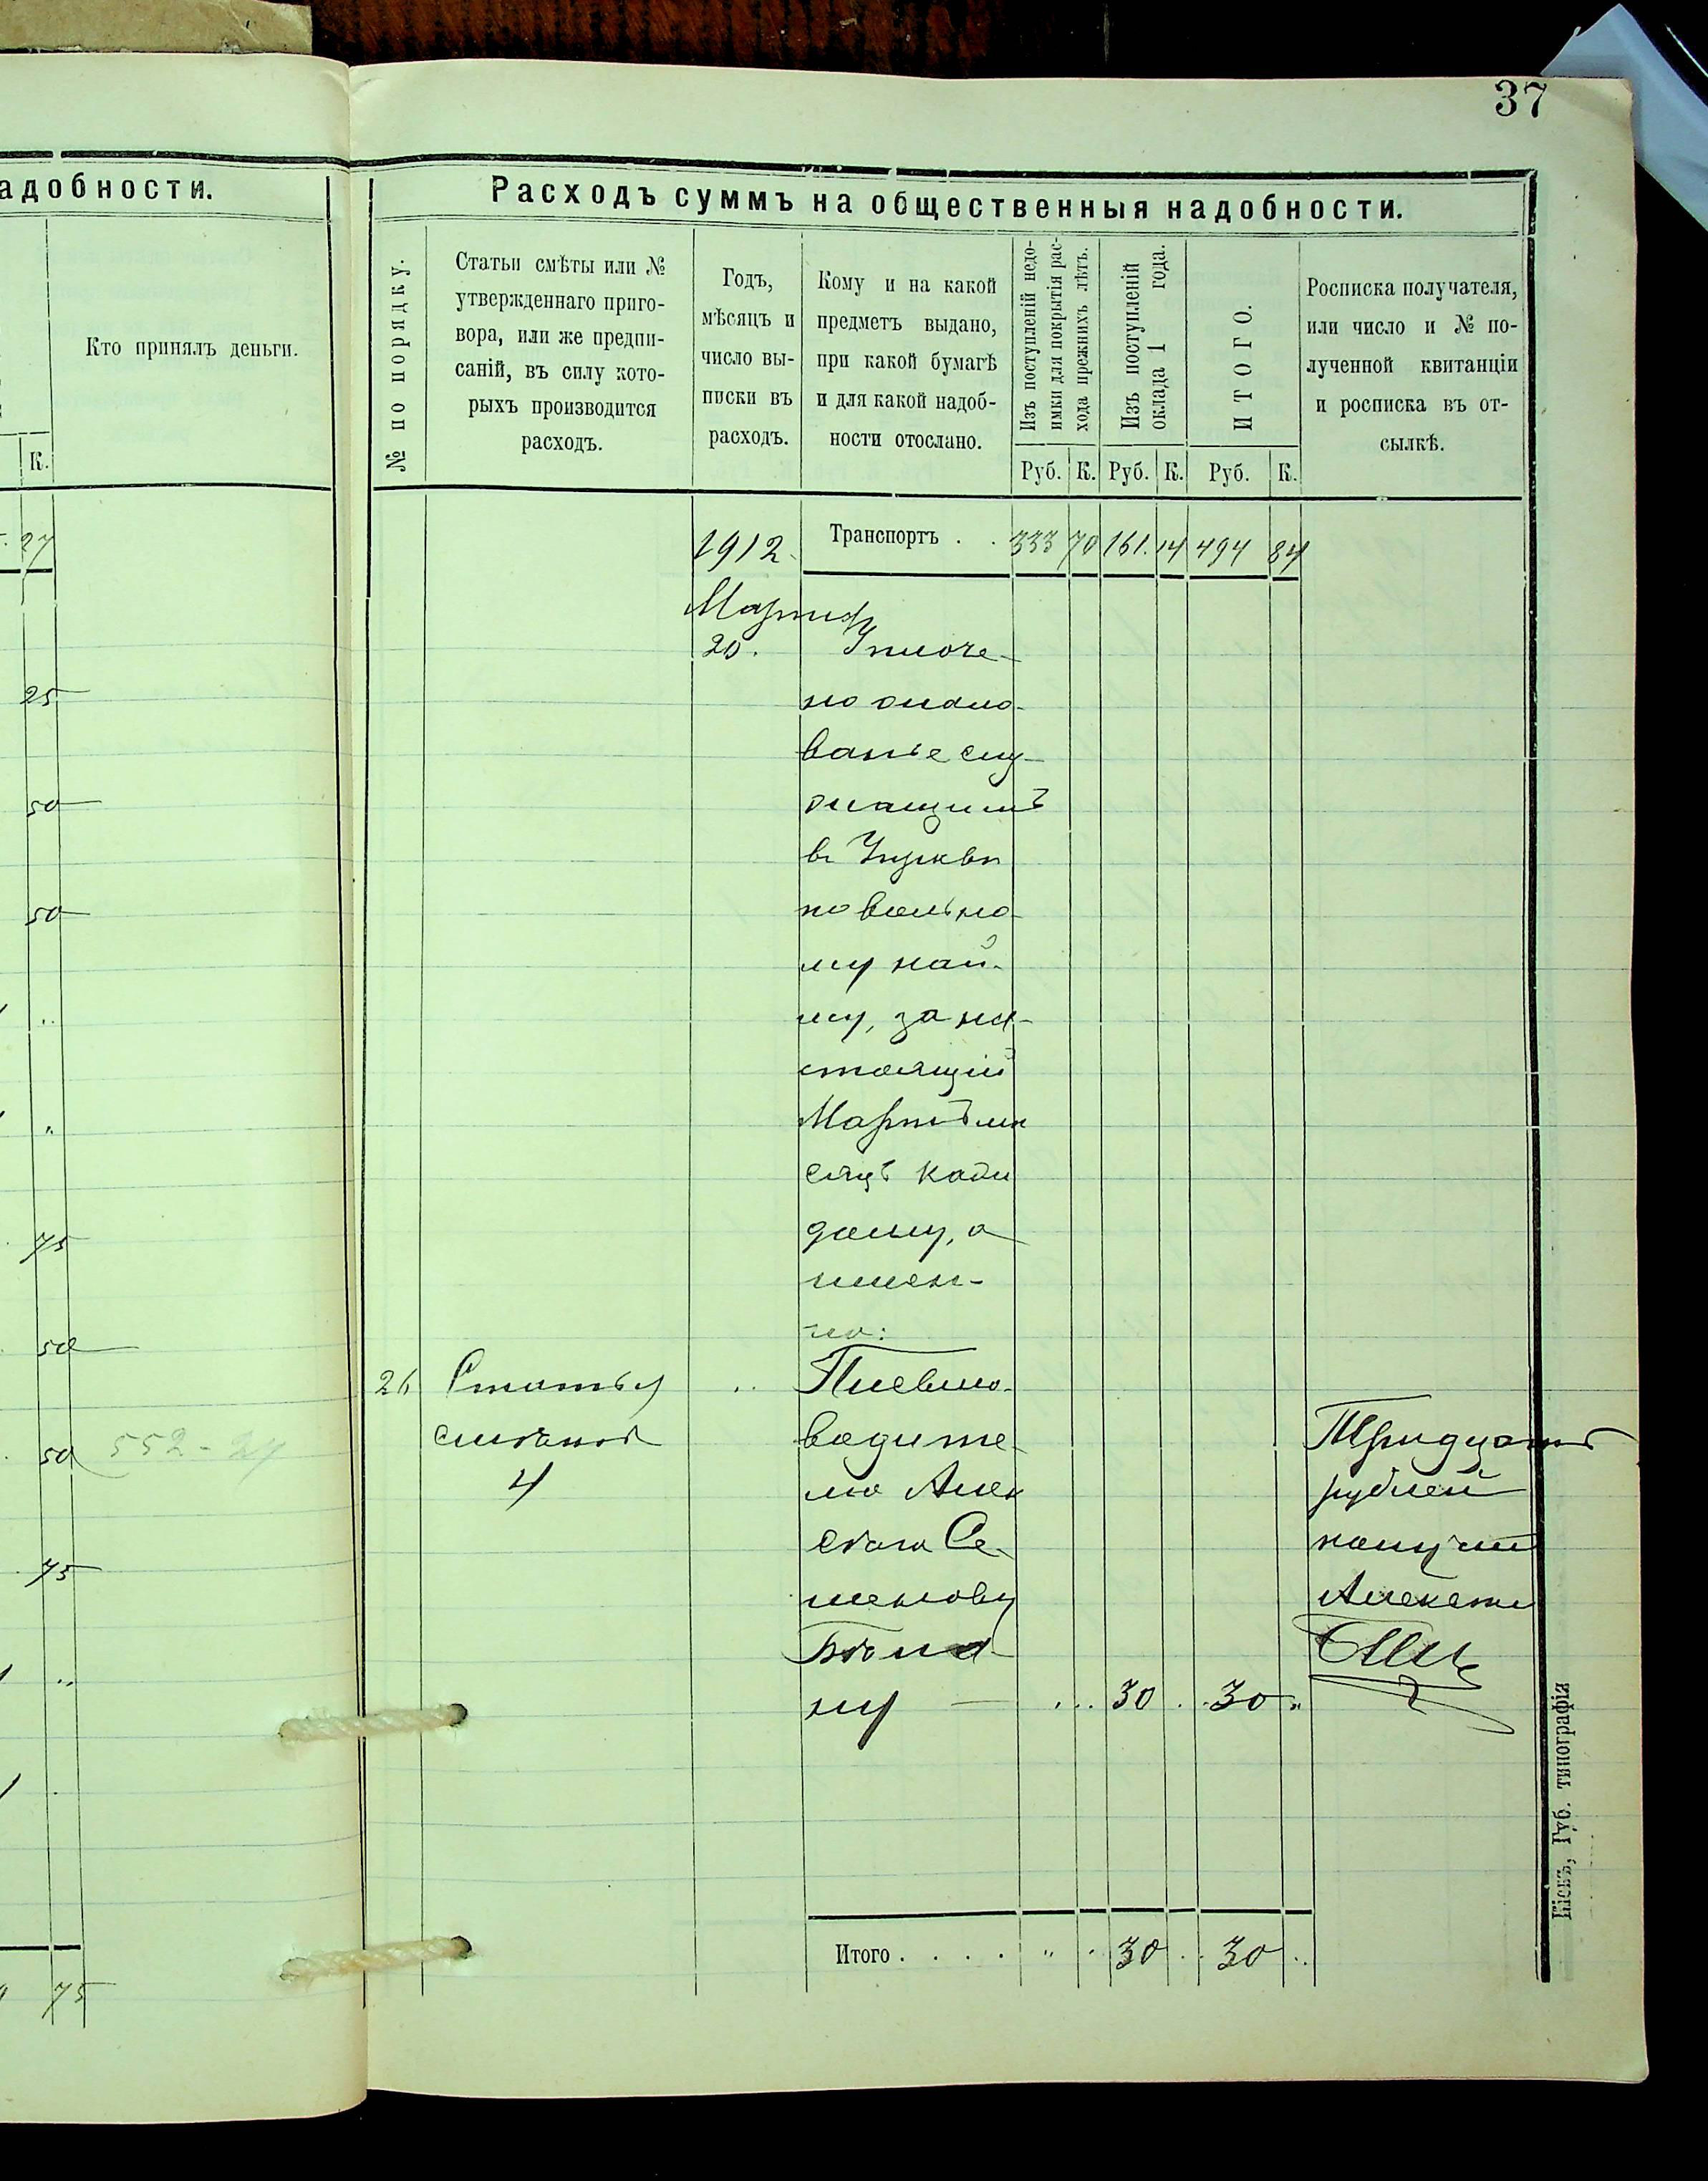 37
адобности.
Кто принялъ деньги.
К.
27
25
50
50
75
50
50 552 - 24
75
75
Расходъ суммъ на общественныя надобности.
№ по порядку.
Статьи смѣты или №
утвержденнаго приго-
вора, или же предпи-
саній, въ силу кото-
рыхъ производится
расходъ.
Годъ,
мѣсяцъ и
число вы-
писки въ
расходъ.
Кому и на какой
предметъ выдано,
при какой бумагѣ
и для какой надоб-
ности отослано.
Изъ поступленій недо-
имки для покрытія рас-
хода прежнихъ лѣтъ.
Изъ поступленій
оклада 1 года.
ИТОГО.
Росписка получателя,
или число и № по-
лученной квитанціи
и росписка въ от-
сылкѣ.
Руб. К. Руб. К. Руб. К.
1912. Транспортъ . . 333 70 161. 14 494 84
Марта
20. Уплоче-
но жало-
ванье слу-
жащимъ
в Церкви
по вольно-
му най-
му, за на-
стоящій
Мартъ мѣ
сяцъ каж
дому, а
имен-
но:
26 Статья .. Пѣвчо-
смѣтной водите-
4 лю Алек
сѣю Се-
менову
ну — ... 30 . . 30 "
Тридцать
рублей
получилъ
Алексей
Итого . . . . " . 30 . . 30 ..
Кіевъ, Губ. типографія